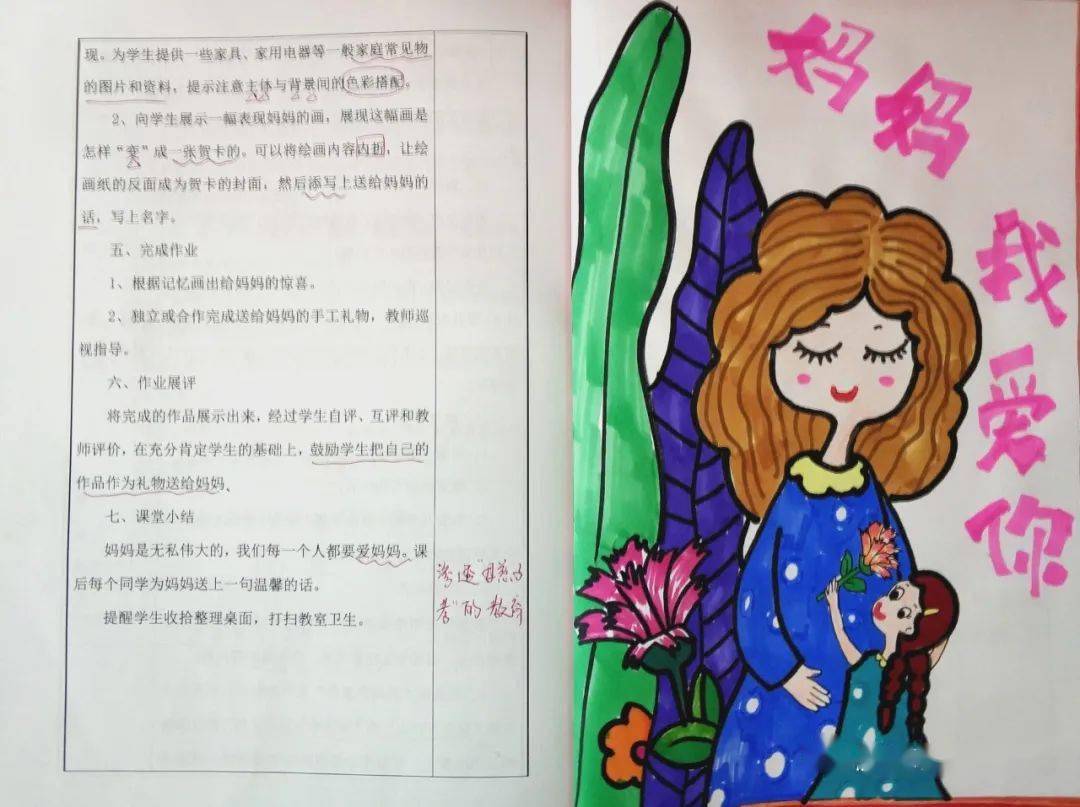 现。为学生提供一些家具、家用电器等一般家庭常见物
的图片和资料，提示注意主体与背景间的色彩搭配。
2、向学生展示一幅表现妈妈的画，展现这幅画是
怎样“变”成一张贺卡的。可以将绘画内容内折，让绘
画纸的反面成为贺卡的封面，然后添写上送给妈妈的
话，写上名字。
五、完成作业
1、根据记忆画出给妈妈的惊喜。
2、独立或合作完成送给妈妈的手工礼物，教师巡
视指导。
六、作业展评
将完成的作品展示出来，经过学生自评、互评和教
师评价，在充分肯定学生的基础上，鼓励学生把自己的
作品作为礼物送给妈妈、
七、课堂小结
妈妈是无私伟大的，我们每一个人都要爱妈妈。课
后每个同学为妈妈送上一句温馨的话。
提醒学生收拾整理桌面，打扫教室卫生。
渗透“母慈子
孝”的教育
妈妈
我爱你